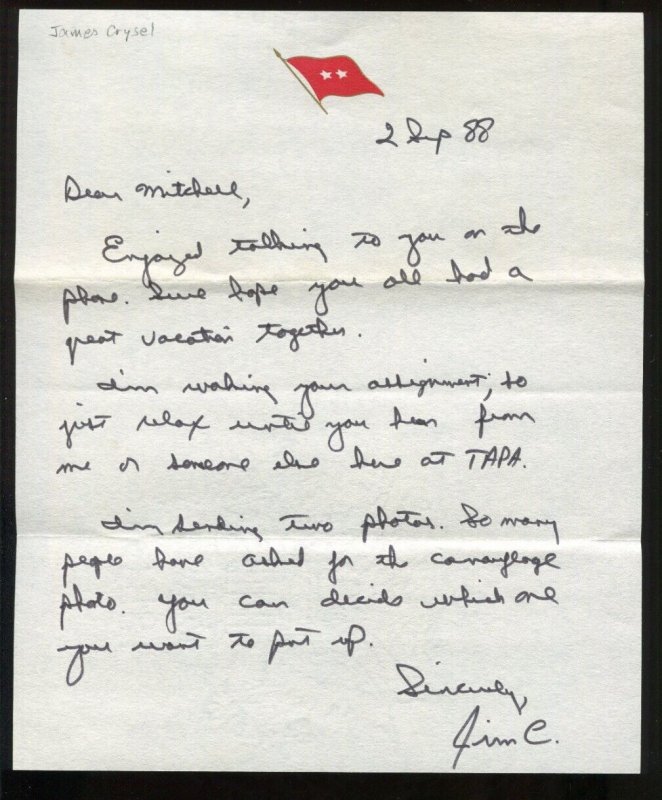 James Crysel
2 Sep 88
Dear Mitchell,
Enjoyed talking to you on the
phone. Sure hope you all had a
great vacation together.
I'm working your assignment, so
just relax until you hear from
me or someone else here at TAPA.
I'm sending two photos. So many
people have asked for the camouflage
photo. You can decide which one
you want to put up.
Sincerely,
Jim C.